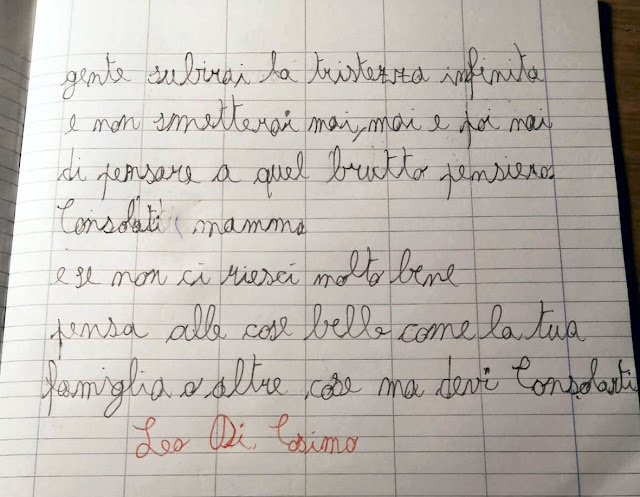 gente subirai la tristezza infinita
e non smetterai mai, mai e poi mai
di pensare a quel brutto pensiero.
Consolati mamma
e se non ci riesci molto bene
pensa alle cose belle come la tua
famiglia o altre cose ma devi Consolarti
Leo Di Cosimo